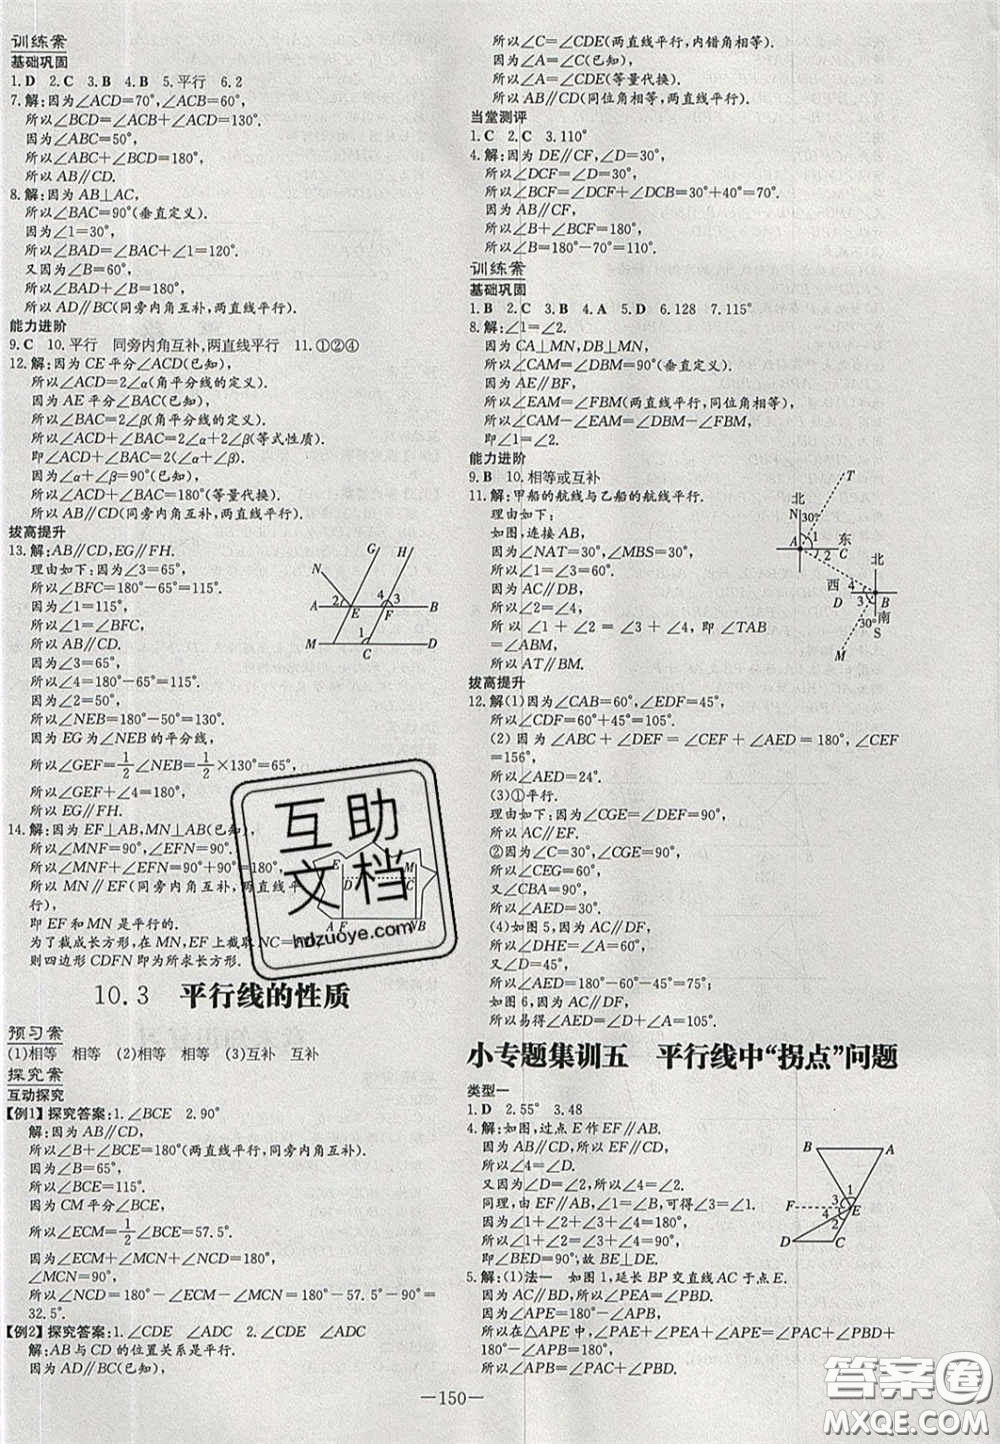 训练案
基础巩固
1.D 2.C 3.B 4.B 5.平行 6.2
7.解:因为∠ACD=70°,∠ACB=60°,
所以∠BCD=∠ACB+∠ACD=130°.
因为∠ABC=50°,
所以∠ABC+∠BCD=180°,
所以AB∥CD.
8.解:因为AB⊥AC,
所以∠BAC=90°(垂直定义).
因为∠1=30°,
所以∠BAD=∠BAC+∠1=120°.
又因为∠B=60°,
所以∠BAD+∠B=180°.
所以AD∥BC(同旁内角互补,两直线平行).
能力进阶
9.C 10.平行 同旁内角互补,两直线平行 11.①②④
12.解:因为CE平分∠ACD(已知),
所以∠ACD=2∠α(角平分线的定义).
因为AE平分∠BAC(已知),
所以∠BAC=2∠β(角平分线的定义).
所以∠ACD+∠BAC=2∠α+2∠β(等式性质).
即∠ACD+∠BAC=2(∠α+∠β).
因为∠α+∠β=90°(已知),
所以∠ACD+∠BAC=180°(等量代换).
所以AB∥CD(同旁内角互补,两直线平行).
拔高提升
13.解:AB∥CD,EG∥FH.
理由如下:因为∠3=65°,
所以∠BFC=180°-65°=115°.
因为∠1=115°,
所以∠1=∠BFC,
所以AB∥CD.
因为∠3=65°,
所以∠4=180°-65°=115°.
因为∠2=50°,
所以∠NEB=180°-50°=130°.
因为EG为∠NEB的平分线,
所以∠GEF=1/2∠NEB=1/2×130°=65°,
所以∠GEF+∠4=180°,
所以EG∥FH.
G H N A 2 E 4 3 F B M 1 C D
14.解:因为EF⊥AB,MN⊥AB(已知),
所以∠MNF=90°,∠EFN=90°.
所以∠MNF+∠EFN=90°+90°=180°,
所以MN∥EF(同旁内角互补,两直线平
行),
即EF和MN是平行的.
为了裁成长方形,在MN,EF上截取NC=
则四边形CDFN即为所求长方形.
E M D C A F B
互助
文档
hdzuoye.com
10.3 平行线的性质
预习案
(1)相等 相等 (2)相等 相等 (3)互补 互补
探究案
互动探究
【例1】探究答案:1.∠BCE 2.90°
解:因为AB∥CD,
所以∠B+∠BCE=180°(两直线平行,同旁内角互补).
因为∠B=65°,
所以∠BCE=115°.
因为CM平分∠BCE,
所以∠ECM=1/2∠BCE=57.5°.
因为∠ECM+∠MCN+∠NCD=180°,
∠MCN=90°,
所以∠NCD=180°-∠MCN-∠ECM=180°-57.5°-90°=
32.5°.
【例2】探究答案:1.∠CDE ∠ADC 2.∠CDE ∠ADC
解:AB与CD的位置关系是平行.
因为AD∥BC(已知),
所以∠C=∠CDE(两直线平行,内错角相等).
因为∠A=∠C(已知),
所以∠A=∠CDE(等量代换).
所以AB∥CD(同位角相等,两直线平行).
当堂测评
1.C 2.C 3.110°
4.解:因为DE∥CF,∠D=30°,
所以∠DCF=∠D=30°,
所以∠BCF=∠DCF+∠DCB=30°+40°=70°.
因为AB∥CF,
所以∠B+∠BCF=180°,
所以∠B=180°-70°=110°.
训练案
基础巩固
1.B 2.C 3.B 4.A 5.D 6.128 7.115°
8.解:∠1=∠2.
因为CA⊥MN,DB⊥MN,
所以∠CAM=∠DBM=90°(垂直定义).
因为AE∥BF,
所以∠EAM=∠FBM(两直线平行,同位角相等),
所以∠CAM-∠EAM=∠DBM-∠FBM,
即∠1=∠2.
能力进阶
9.B 10.相等或互补
11.解:甲船的航线与乙船的航线平行.
理由如下:
如图,连接AB,
因为∠NAT=30°,∠MBS=30°,
所以∠1=∠3=60°.
因为AC∥DB,
所以∠2=∠4,
所以∠1+∠2=∠3+∠4,即∠TAB
=∠ABM,
所以AT∥BM.
T 北 N 30° 1 东 A 2 C 北 西 4 D 3 B 30° 南 S M
拔高提升
12.解(1)因为∠CAB=60°,∠EDF=45°,
所以∠CDF=60°+45°=105°.
(2)因为∠ABC+∠DEF=∠CEF+∠AED=180°,∠CEF
=156°,
所以∠AED=24°.
(3)①平行.
理由如下:因为∠CGE=∠F=90°,
所以AC∥EF.
②因为∠C=30°,∠CGE=90°,
所以∠CEG=60°.
又因为∠AED+∠DEF=∠CEG,
所以∠AED=∠CEG-∠DEF=60°-45°=15°.
(4)如图5,因为AC∥DF,
所以∠DHE=∠A=60°.
又因为∠DEF=45°,
所以∠AED=180°-60°-45°=75°.
如图6,因为AC∥DF,
所以易得∠AED=∠A+∠D=105°.
小专题集训五 平行线中“拐点”问题
类型一
1.D 2.55° 3.48
4.解:如图,过点E作EF∥AB.
因为AB∥CD,所以EF∥CD,
所以∠4=∠D.
又因为∠D=∠2,所以∠4=∠2.
同理,由EF∥AB,∠1=∠B,可得∠3=∠1.
因为∠1+∠2+∠3+∠4=180°,
所以∠1+∠2=∠3+∠4=90°,
即∠BED=90°,故BE⊥DE.
B A 1 3 F E 4 2 D C
5.解:(1)法一 如图1,延长BP交直线AC于点E.
因为AC∥BD,所以∠PEA=∠PBD.
因为∠APE=180°-∠APB,
所以在△APE中,∠PAE+∠PEA=180°-∠APE=∠PAC+∠PBD=
180°-∠APE=∠APB,
所以∠APB=∠PAC+∠PBD.
—150—
答案圈
MXQE.COM